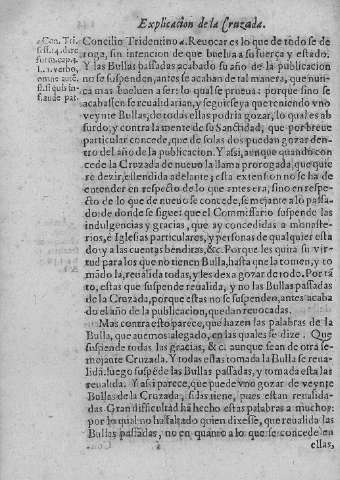 Explicacion de la Cruzada.
Concilio Tridentino a. Reuocar es lo que de todo se de
roga, sin intencion de que buelua a su fuerça y estado.
Y las Bullas passadas acabado su año de la publicacion
no se suspenden, antes se acaban de tal manera, que nun-
ca mas bueluen a ser: lo qual se prueua: porque sino se
acabassen se reualidarian, y seguirseya que teniendo vno
veynte Bullas, de todas ellas podria gozar, lo qual es ab
surdo, y contra la mente de su Sanctidad, que por breue
particular concede, que de solas dos puedan gozar den-
tro del año de la publicacion. Y assi, aunque quando con-
cede la Cruzada de nueuo la llama prorogada, que quie
re dezir, estendida adelante; esta extension no se ha de
entender en respecto de lo que antes era, sino en respec-
to de lo que de nueuo se concede, semejante a lo passa-
do: de donde se sigue: que el Commissario suspende las
indulgencias y gracias, que ay concedidas a monaste-
rios, e Iglesias particulares, y personas de qualquier esta
do, y a las cuentas benditas, &c. Porque les quita su vir-
tud para los que no tienen Bulla, hasta que la tomen, y to
mãdo la, reualida todas, y les dexa gozar de todo. Por tã
to, estas que suspende reualida, y no las Bullas passadas
de la Cruzada, porque estas no se suspenden, antes acaba
do el año de la publicacion, quedan reuocadas.
Mas contra esto parece, que hazen las palabras de la
Bulla, que auemos alegado, en las quales se dize. Que
suspende todas las gracias, &c. aunque sean de otra se-
mejante Cruzada. Y todas estas tomada la Bulla se reua-
lida: luego suspẽde las Bullas passadas, y tomada esta las
reualida. Y assi parece, que puede vno gozar de veynte
Bullas de la Cruzada, si las tiene, pues estan reualida-
das. Gran difficultad ha hecho estas palabras a muchos:
por lo qual no ha faltado quien dixesse, que reualida las
Bullas passadas, no en quanto a lo que se concede en
ellas,
a Con. Tri.
sess. 14. de re
form. cap. 4.